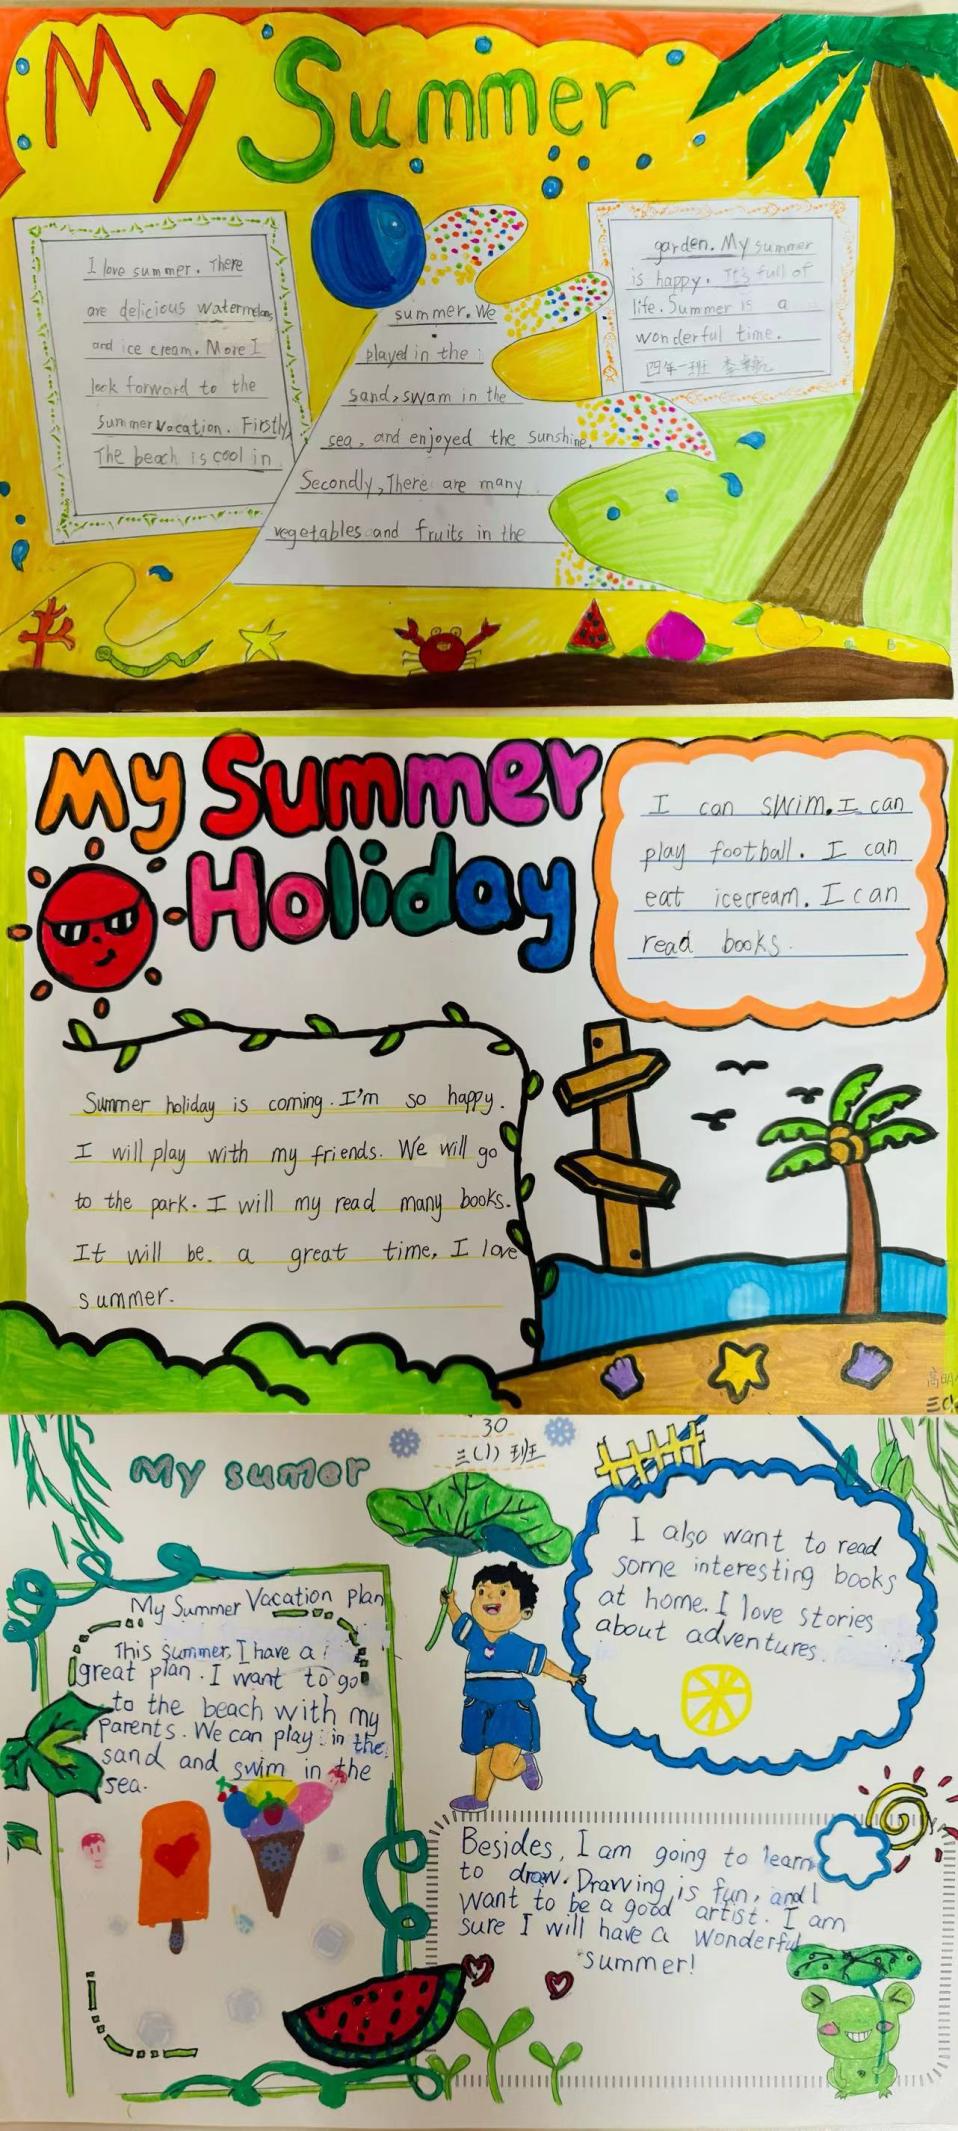 My Summer
I love summer. There
are delicious watermelons
and ice cream. More I
look forward to the
summer vacation. Firstly,
The beach is cool in
summer. We
played in the
sand, swam in the
sea, and enjoyed the sunshine.
Secondly, There are many
vegetables and fruits in the
garden. My summer
is happy. It's full of
life. Summer is a
wonderful time.
四年一班
My Summer
Holiday
I can swim. I can
play football. I can
eat icecream. I can
read books.
Summer holiday is coming. I'm so happy.
I will play with my friends. We will go
to the park. I will my read many books.
It will be a great time, I love
summer.
30
三(1)班
My sumer
My Summer Vacation plan
This summer, I have a
great plan. I want to go
to the beach with my
parents. We can play in the
sand and swim in the
sea.
I also want to read
some interesting books
at home. I love stories
about adventures.
Besides, I am going to learn
to draw. Drawing is fun, and I
want to be a good artist. I am
sure I will have a wonderful
summer!